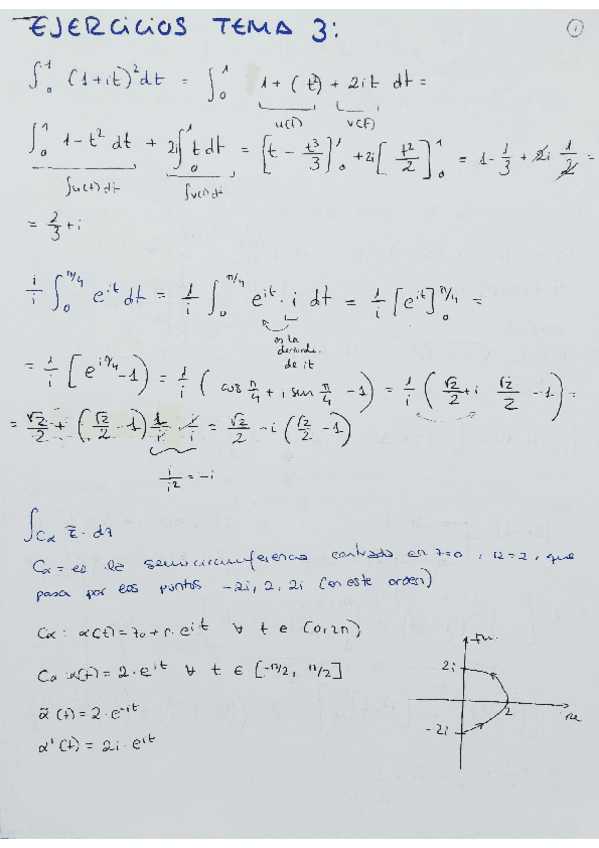 EJERCICIOS TEMA 3:
①
∫₀¹ (1+it)² dt = ∫₀¹ 1+(t²) + 2it dt =
u(t) v(t)
∫₀¹ 1-t² dt + 2i∫₀¹ t dt = [t - t³/3]₀¹ + 2i[t²/2]₀¹ = 1 - 1/3 + 2i 1/2 =
∫u(t)dt ∫v(t)dt
= 2/3 + i
i/i ∫₀^π/4 e^it dt = 1/i ∫₀^π/4 e^it · i dt = 1/i [e^it]₀^π/4 =
es la
derivada
de it
= 1/i [e^iπ/4 - 1] = 1/i (cos π/4 + i sen π/4 - 1) = 1/i (√2/2 + i √2/2 - 1) =
= √2/2 + (√2/2 - 1) 1/i · i/i = √2/2 - i (√2/2 - 1)
i/i² = -i
∫Cα z̄ · dz
Cα = es la semicircunferencia centrada en z=0, r=2, que
pasa por los puntos -2i, 2, 2i (en este orden)
Cα : α(t) = z₀ + r · e^it ∀ t ∈ [0, 2π]
Cα : α(t) = 2 · e^it ∀ t ∈ [-π/2, π/2]
ᾱ(t) = 2 · e^-it
α'(t) = 2i · e^it
Im
2i
2
Re
-2i